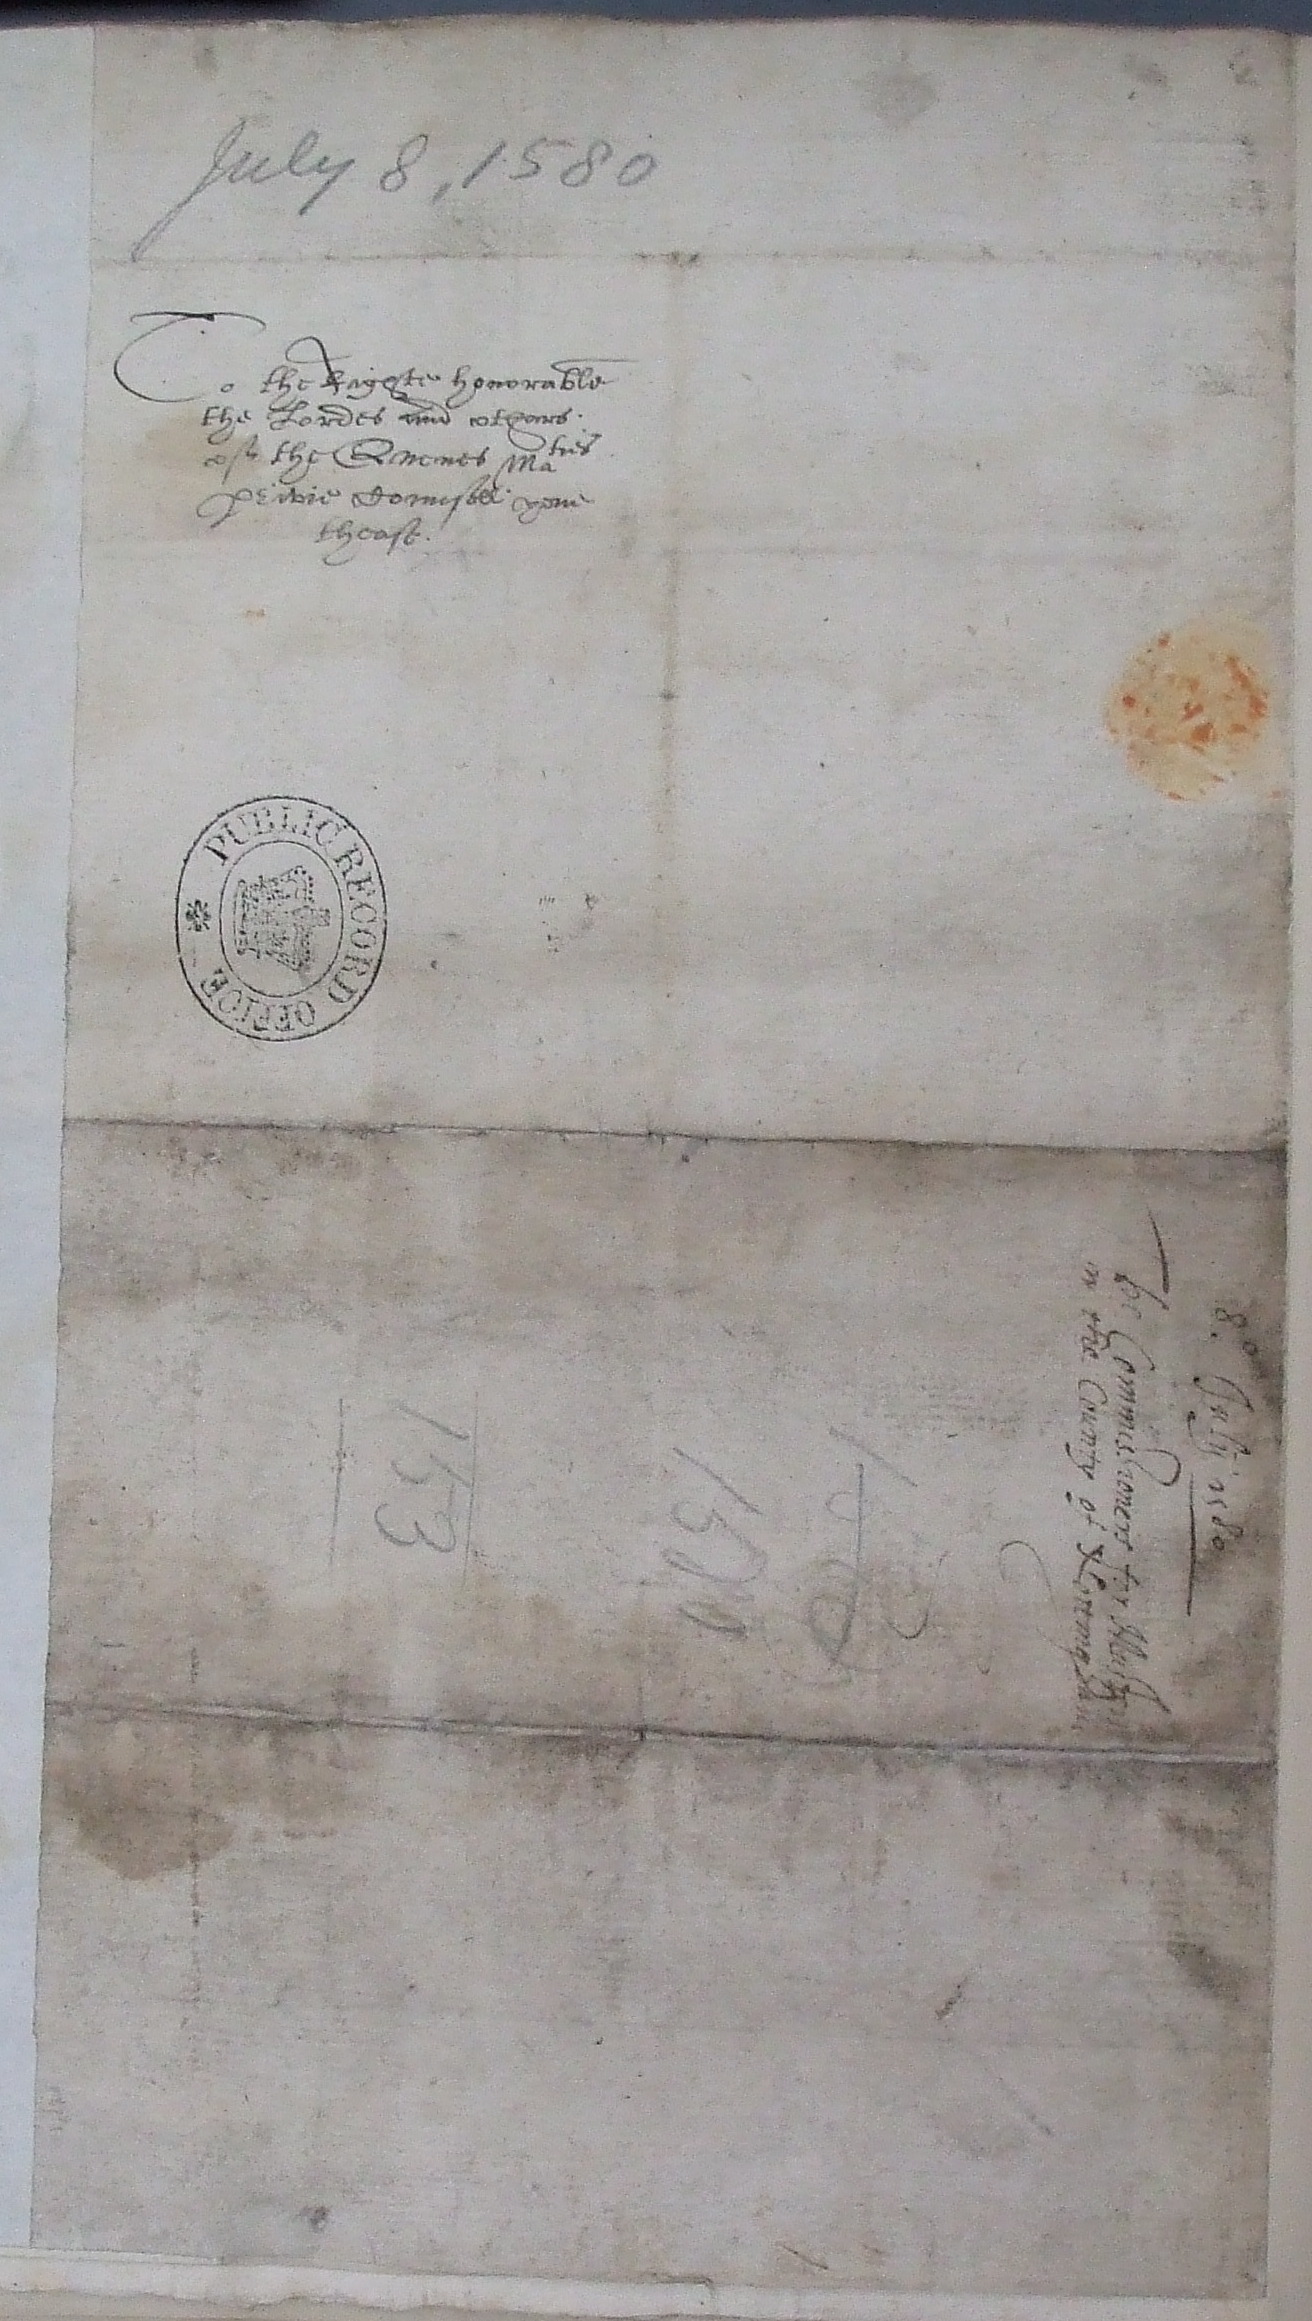 July 8, 1580
To the Righte honorable
the Lordes and others
of the Quenes Maties
privie Counsell yeue
theast.
PUBLIC RECORD OFFICE
8º July 1580
The Commissioners for Musters
in the County of
153